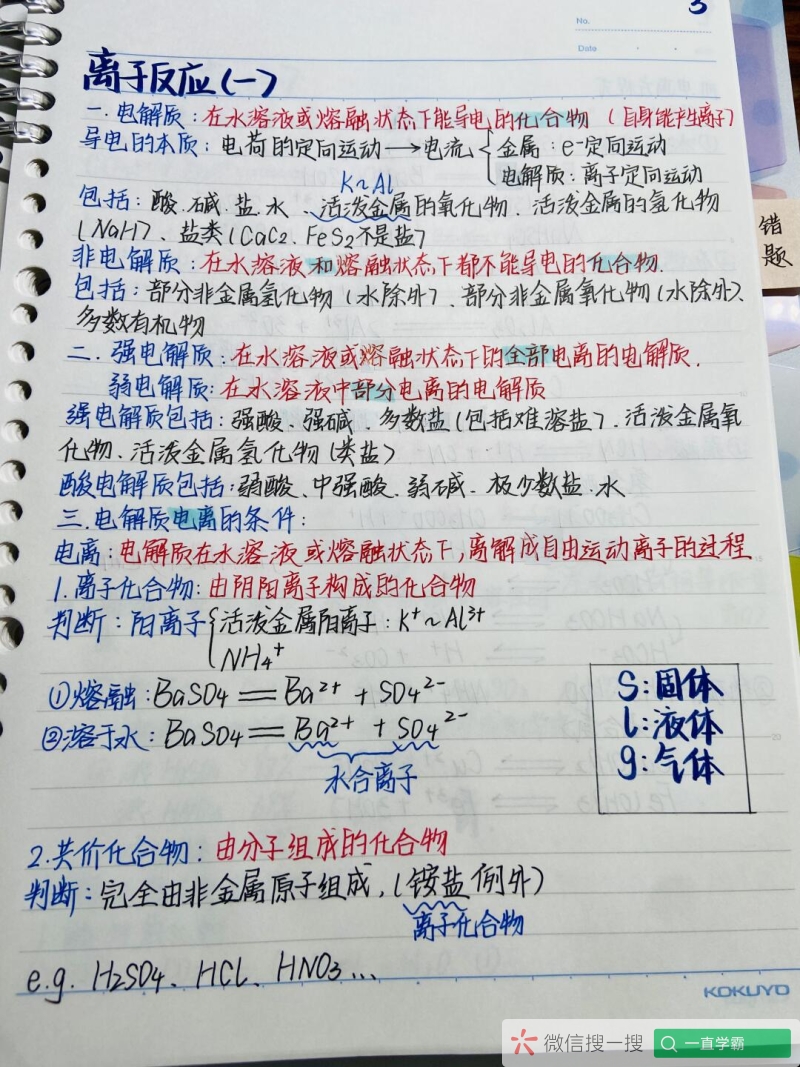 3
No.
Date
离子反应(一)
一.电解质:在水溶液或熔融状态下能导电的化合物 (自身能产生离子)
导电的本质:电荷的定向运动→电流{金属:e-定向运动
电解质:离子定向运动
K~Al
包括:酸.碱.盐.水、活泼金属的氧化物.活泼金属的氢化物
(NaH)、盐类(CaC2.FeS2不是盐)
非电解质:在水溶液和熔融状态下都不能导电的化合物.
包括:部分非金属氢化物(水除外)、部分非金属氧化物(水除外)、
多数有机物
二.强电解质:在水溶液或熔融状态下的全部电离的电解质.
弱电解质:在水溶液中部分电离的电解质
强电解质包括:强酸、强碱.多数盐(包括难溶盐).活泼金属氧
化物、活泼金属氢化物(类盐)
酸电解质包括:弱酸、中强酸、弱碱.极少数盐.水
三.电解质电离的条件:
电离:电解质在水溶液或熔融状态下,离解成自由运动离子的过程
1.离子化合物:由阴阳离子构成的化合物
判断:阳离子{活泼金属阳离子:K+~Al3+
NH4+
①熔融:BaSO4=Ba2+ +SO42-
②溶于水:BaSO4=Ba2+ +SO42-
水合离子
S:固体
l:液体
g:气体
2.共价化合物:由分子组成的化合物
判断:完全由非金属原子组成,(铵盐例外)
离子化合物
e.g. H2SO4、HCl、HNO3...
KOKUYO
错
题
微信搜一搜
一直学霸